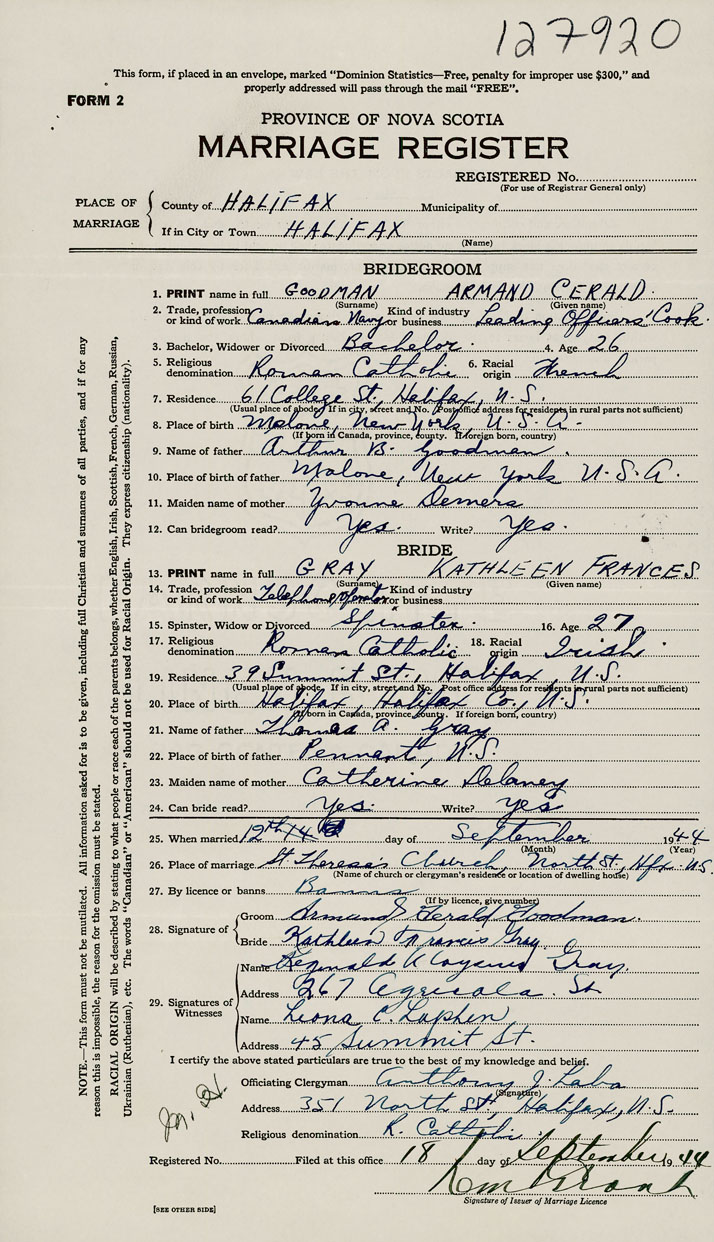 127920
This form, if placed in an envelope, marked "Dominion Statistics—Free, penalty for improper use $300," and
properly addressed will pass through the mail "FREE".
FORM 2
PROVINCE OF NOVA SCOTIA
MARRIAGE REGISTER
REGISTERED No.
(For use of Registrar General only)
PLACE OF MARRIAGE
County of HALIFAX Municipality of
If in City or Town HALIFAX
(Name)
BRIDEGROOM
1. PRINT name in full GOODMAN ARMAND CERALD
(Surname) (Given name)
2. Trade, profession or kind of work Canadian Navy Kind of industry or business Leading Officers' Cook
3. Bachelor, Widower or Divorced Bachelor 4. Age 26
5. Religious denomination Roman Catholic 6. Racial origin French
7. Residence 61 College St., Halifax, N.S.
(Usual place of abode. If in city, street and No. Post office address for residents in rural parts not sufficient)
8. Place of birth Malone, New York, U.S.A.
(If born in Canada, province, county. If foreign born, country)
9. Name of father Arthur B. Goodman
10. Place of birth of father Malone, New York U.S.A.
11. Maiden name of mother Yvonne Demers
12. Can bridegroom read? Yes. Write? Yes.
BRIDE
13. PRINT name in full GRAY KATHLEEN FRANCES
(Surname) (Given name)
14. Trade, profession or kind of work Telephone Operator Kind of industry or business
15. Spinster, Widow or Divorced Spinster 16. Age 27
17. Religious denomination Roman Catholic 18. Racial origin Irish
19. Residence 39 Summit St., Halifax, N.S.
(Usual place of abode. If in city, street and No. Post office address for residents in rural parts not sufficient)
20. Place of birth Halifax, Halifax Co., N.S.
(If born in Canada, province, county. If foreign born, country)
21. Name of father Thomas A. Gray
22. Place of birth of father Pennant, N.S.
23. Maiden name of mother Catherine Delaney
24. Can bride read? Yes. Write? Yes
25. When married 12th day of September 1944
(Month) (Year)
26. Place of marriage St Theresa's Church, North St., Hfx. N.S.
(Name of church or clergyman's residence or location of dwelling house)
27. By licence or banns Banns
(If by licence, give number)
28. Signature of
Groom Armand Gerald Goodman.
Bride Kathleen Francis Gray
29. Signatures of Witnesses
Name Reginald Aloysius Gray
Address 267 Agricola St
Name Leona C. Lophen
Address 45 Summit St.
I certify the above stated particulars are true to the best of my knowledge and belief.
Officiating Clergyman Anthony J. Laba
(Signature)
Address 351 North St, Halifax, N.S.
Religious denomination R. Catholic
Registered No. Filed at this office 18 day of September 1944
Signature of Issuer of Marriage Licence
[SEE OTHER SIDE]
NOTE.—This form must not be mutilated. All information asked for is to be given, including full Christian and surnames of all parties, and if for any
reason this is impossible, the reason for the omission must be stated.
RACIAL ORIGIN will be described by stating to what people or race each of the parents belongs, whether English, Irish, Scottish, French, German, Russian,
Ukrainian (Ruthenian), etc. The words "Canadian" or "American" should not be used for Racial Origin. They express citizenship (nationality).